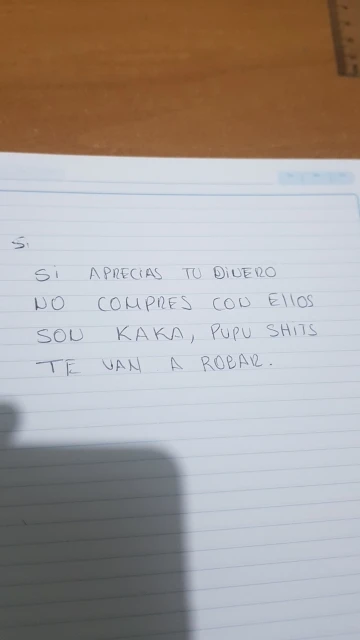 S.
Si APRECIAS TU DiNERO
NO COMPRES CON EllOS
SON KAKA, PUPU SHITS
TE VAN A ROBAR.